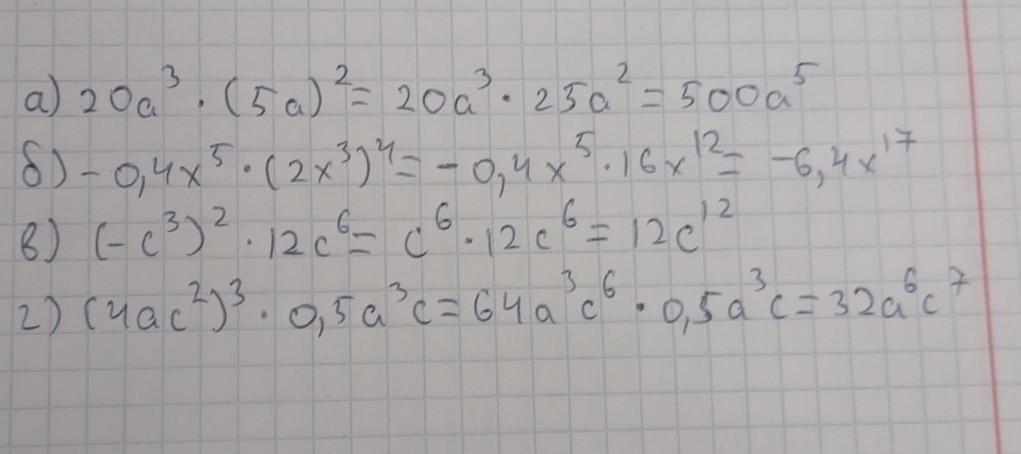 а) 20a³ · (5a)² = 20a³ · 25a² = 500a⁵
б) -0,4x⁵ · (2x³)⁴ = -0,4x⁵ · 16x¹² = -6,4x¹⁷
в) (-c³)² · 12c⁶ = c⁶ · 12c⁶ = 12c¹²
г) (4ac²)³ · 0,5a³c = 64a³c⁶ · 0,5a³c = 32a⁶c⁷